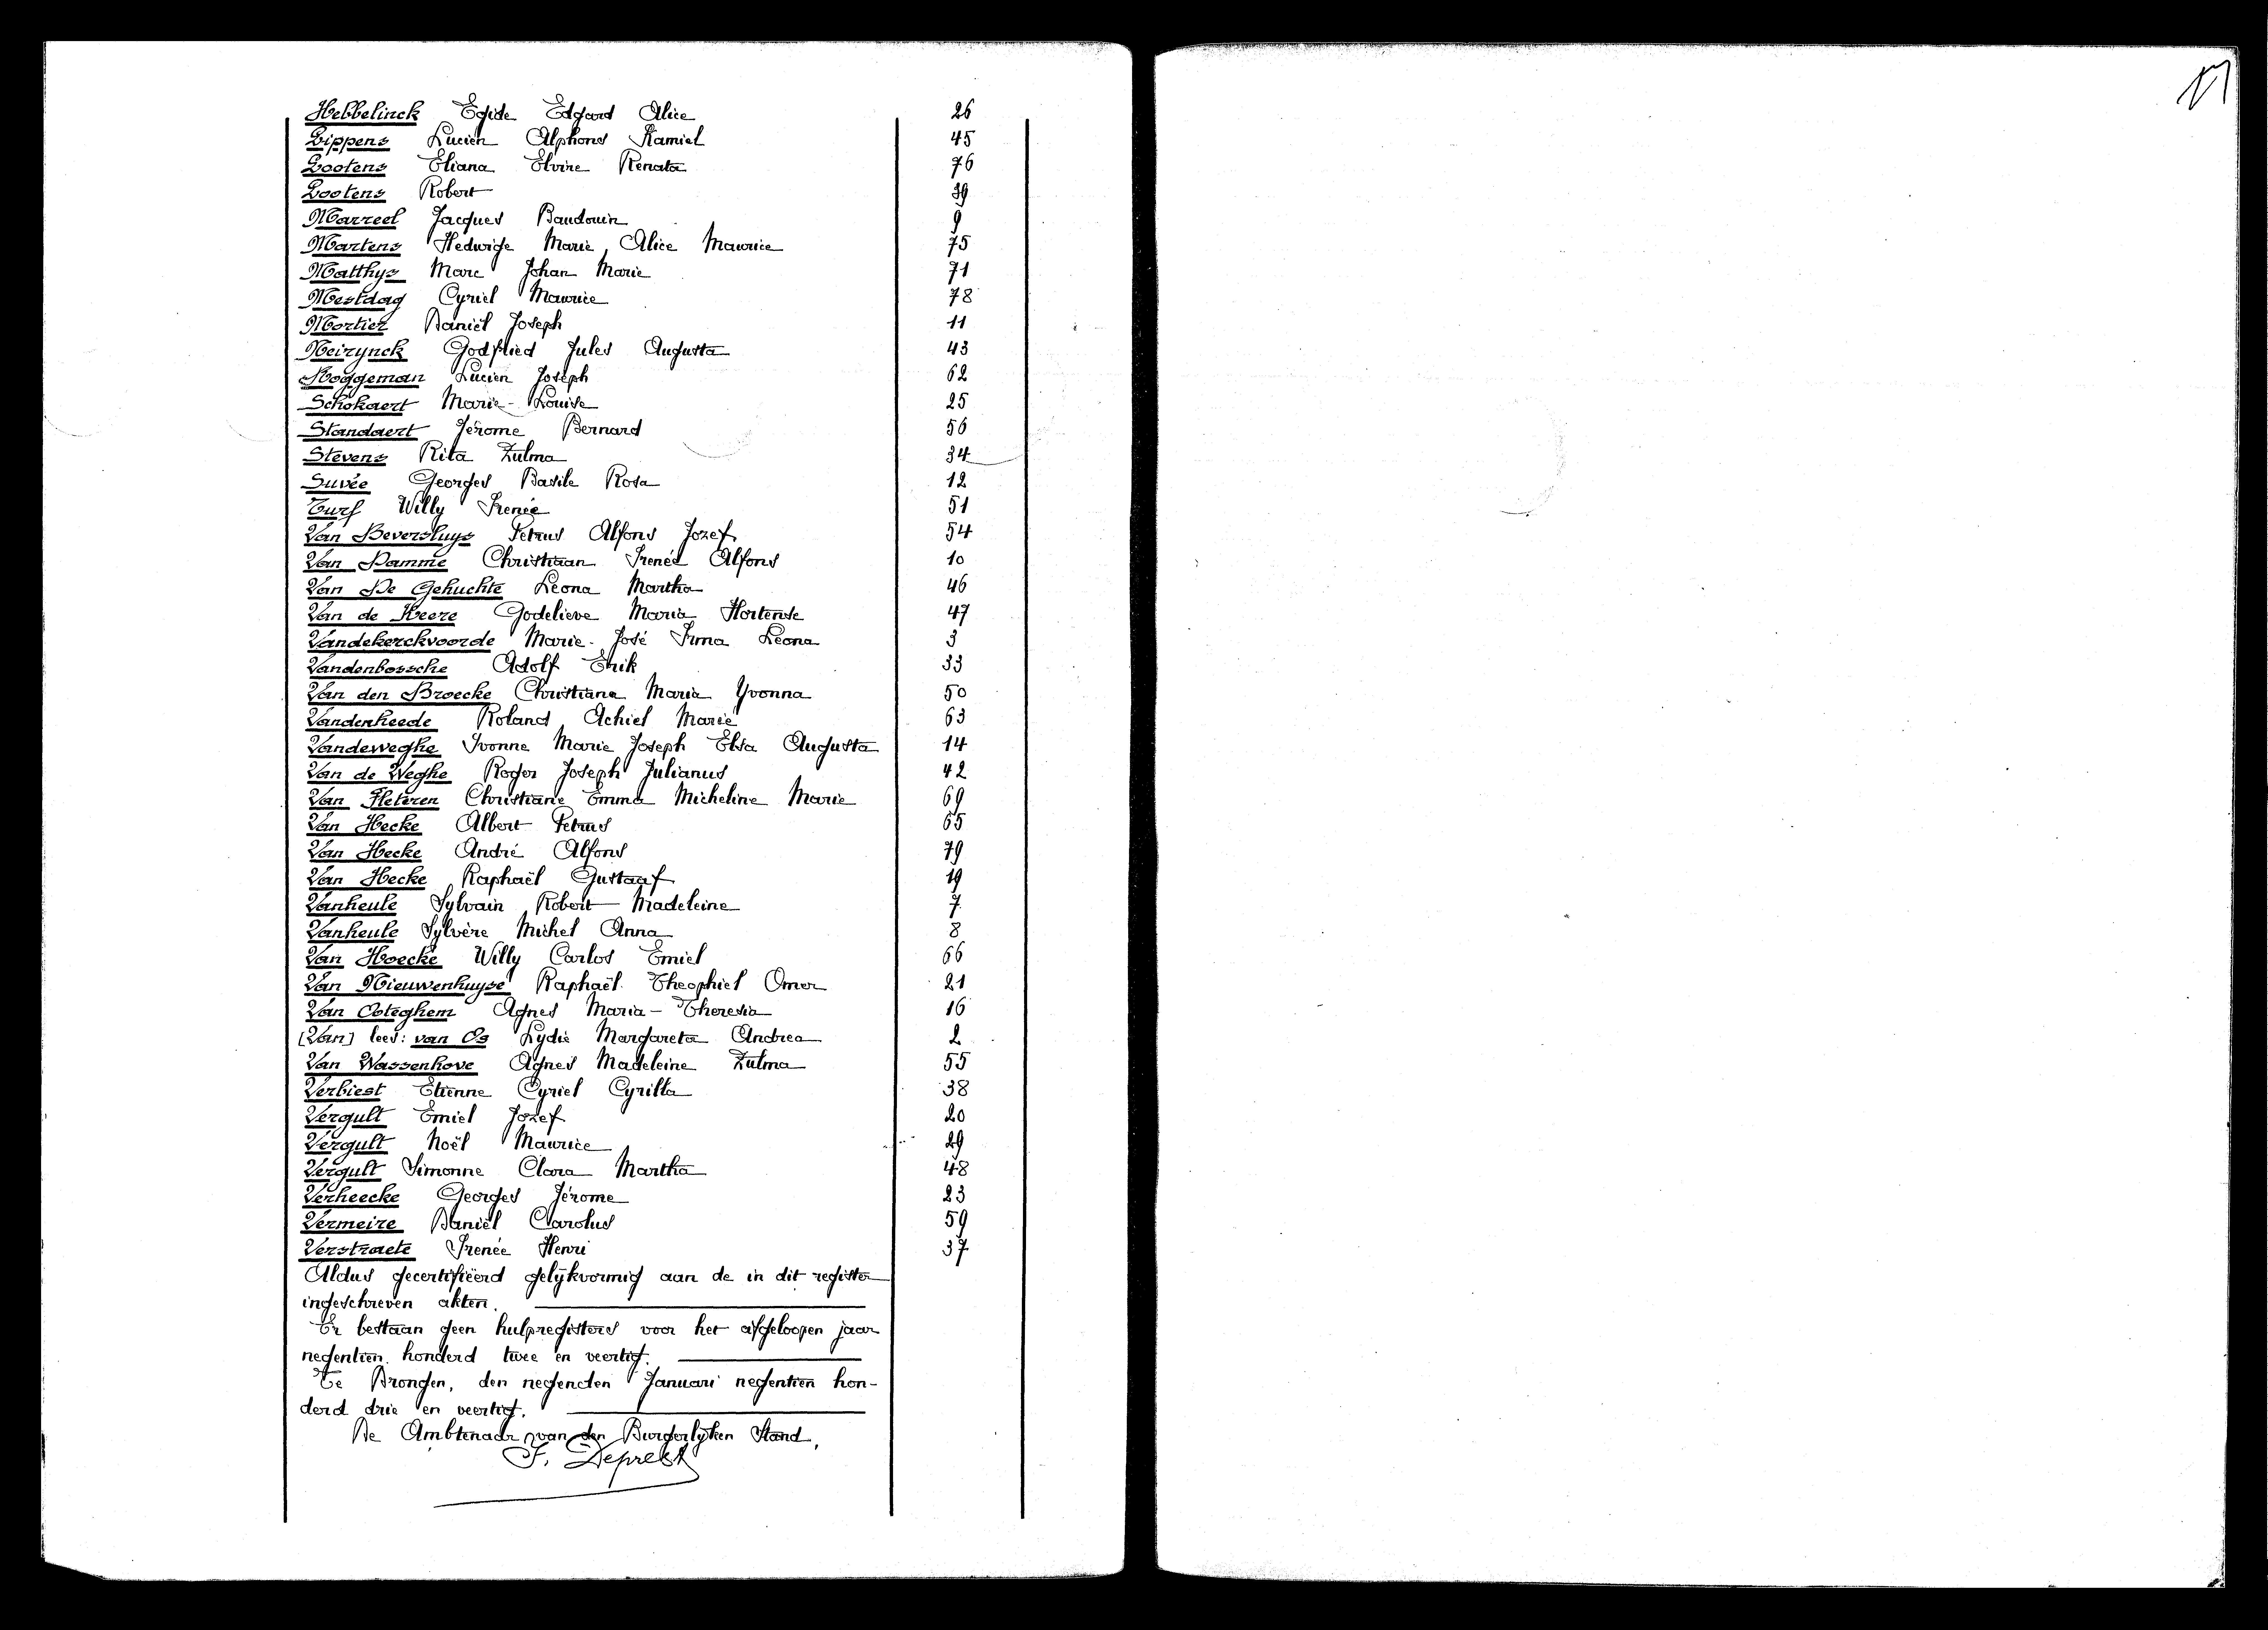 Hebbelinck Egide Edgard Alice 26
Lippens Lucien Alphons Kamiel 45
Lootens Eliana Elvire Renata 76
Lootens Robert 39
Marreel Jacques Baudouin 9
Martens Hedwige Marie Alice Maurice 75
Matthys Marc Johan Marie 71
Mestdag Cyriel Maurice 78
Mortier Daniël Joseph 11
Neirynck Godfried Jules Augusta 43
Roggeman Lucien Joseph 62
Schokaert Marie-Louise 25
Standaert Jérome Bernard 56
Stevens Rita Zulma 34
Suvée Georges Basile Rosa 12
Turf Willy Irenée 51
Van Beversluys Petrus Alfons Jozef 54
Van Damme Christiaan Irenée Alfons 10
Van De Gehuchte Leona Martha 46
Van de Keere Godelieve Maria Hortense 47
Vandekerckvoorde Marie-José Irma Leona 3
Vandenbossche Adolf Erik 33
Van den Broecke Christiana Maria Yvonna 50
Vandenheede Roland Achiel Marie 63
Vandeweghe Ivonne Marie Joseph Elsa Augusta 14
Van de Weghe Roger Joseph Julianus 42
Van Fleteren Christiane Emma Micheline Marie 69
Van Hecke Albert Petrus 65
Van Hecke André Alfons 79
Van Hecke Raphaël Gustaaf 19
Vanheule Sylvain Robert Madeleine 7
Vanheule Sylvère Michel Anna 8
Van Hoecke Willy Carlos Emiel 66
Van Nieuwenhuyse Raphaël Theophiel Omer 21
Van Ooteghem Agnes Maria-Theresia 16
[Van] lees: van Os Lydie Margareta Andrea 2
Van Wassenhove Agnes Madeleine Zulma 55
Verbiest Etienne Cyriel Cyrilla 38
Vergult Emiel Jozef 20
Vergult Noël Maurice 29
Vergult Simonne Clara Martha 48
Verheecke Georges Jérome 23
Vermeire Daniël Carolus 59
Verstraete Irenée Henri 37
Aldus gecertifiëerd gelijkvormig aan de in dit register
ingeschreven akten.
Er bestaan geen hulpregisters voor het afgeloopen jaar
negentien honderd twee en veertig.
Te Drongen, den negenden Januari negentien hon-
derd drie en veertig.
De Ambtenaar van den Burgerlijken Stand,
F. Deprest